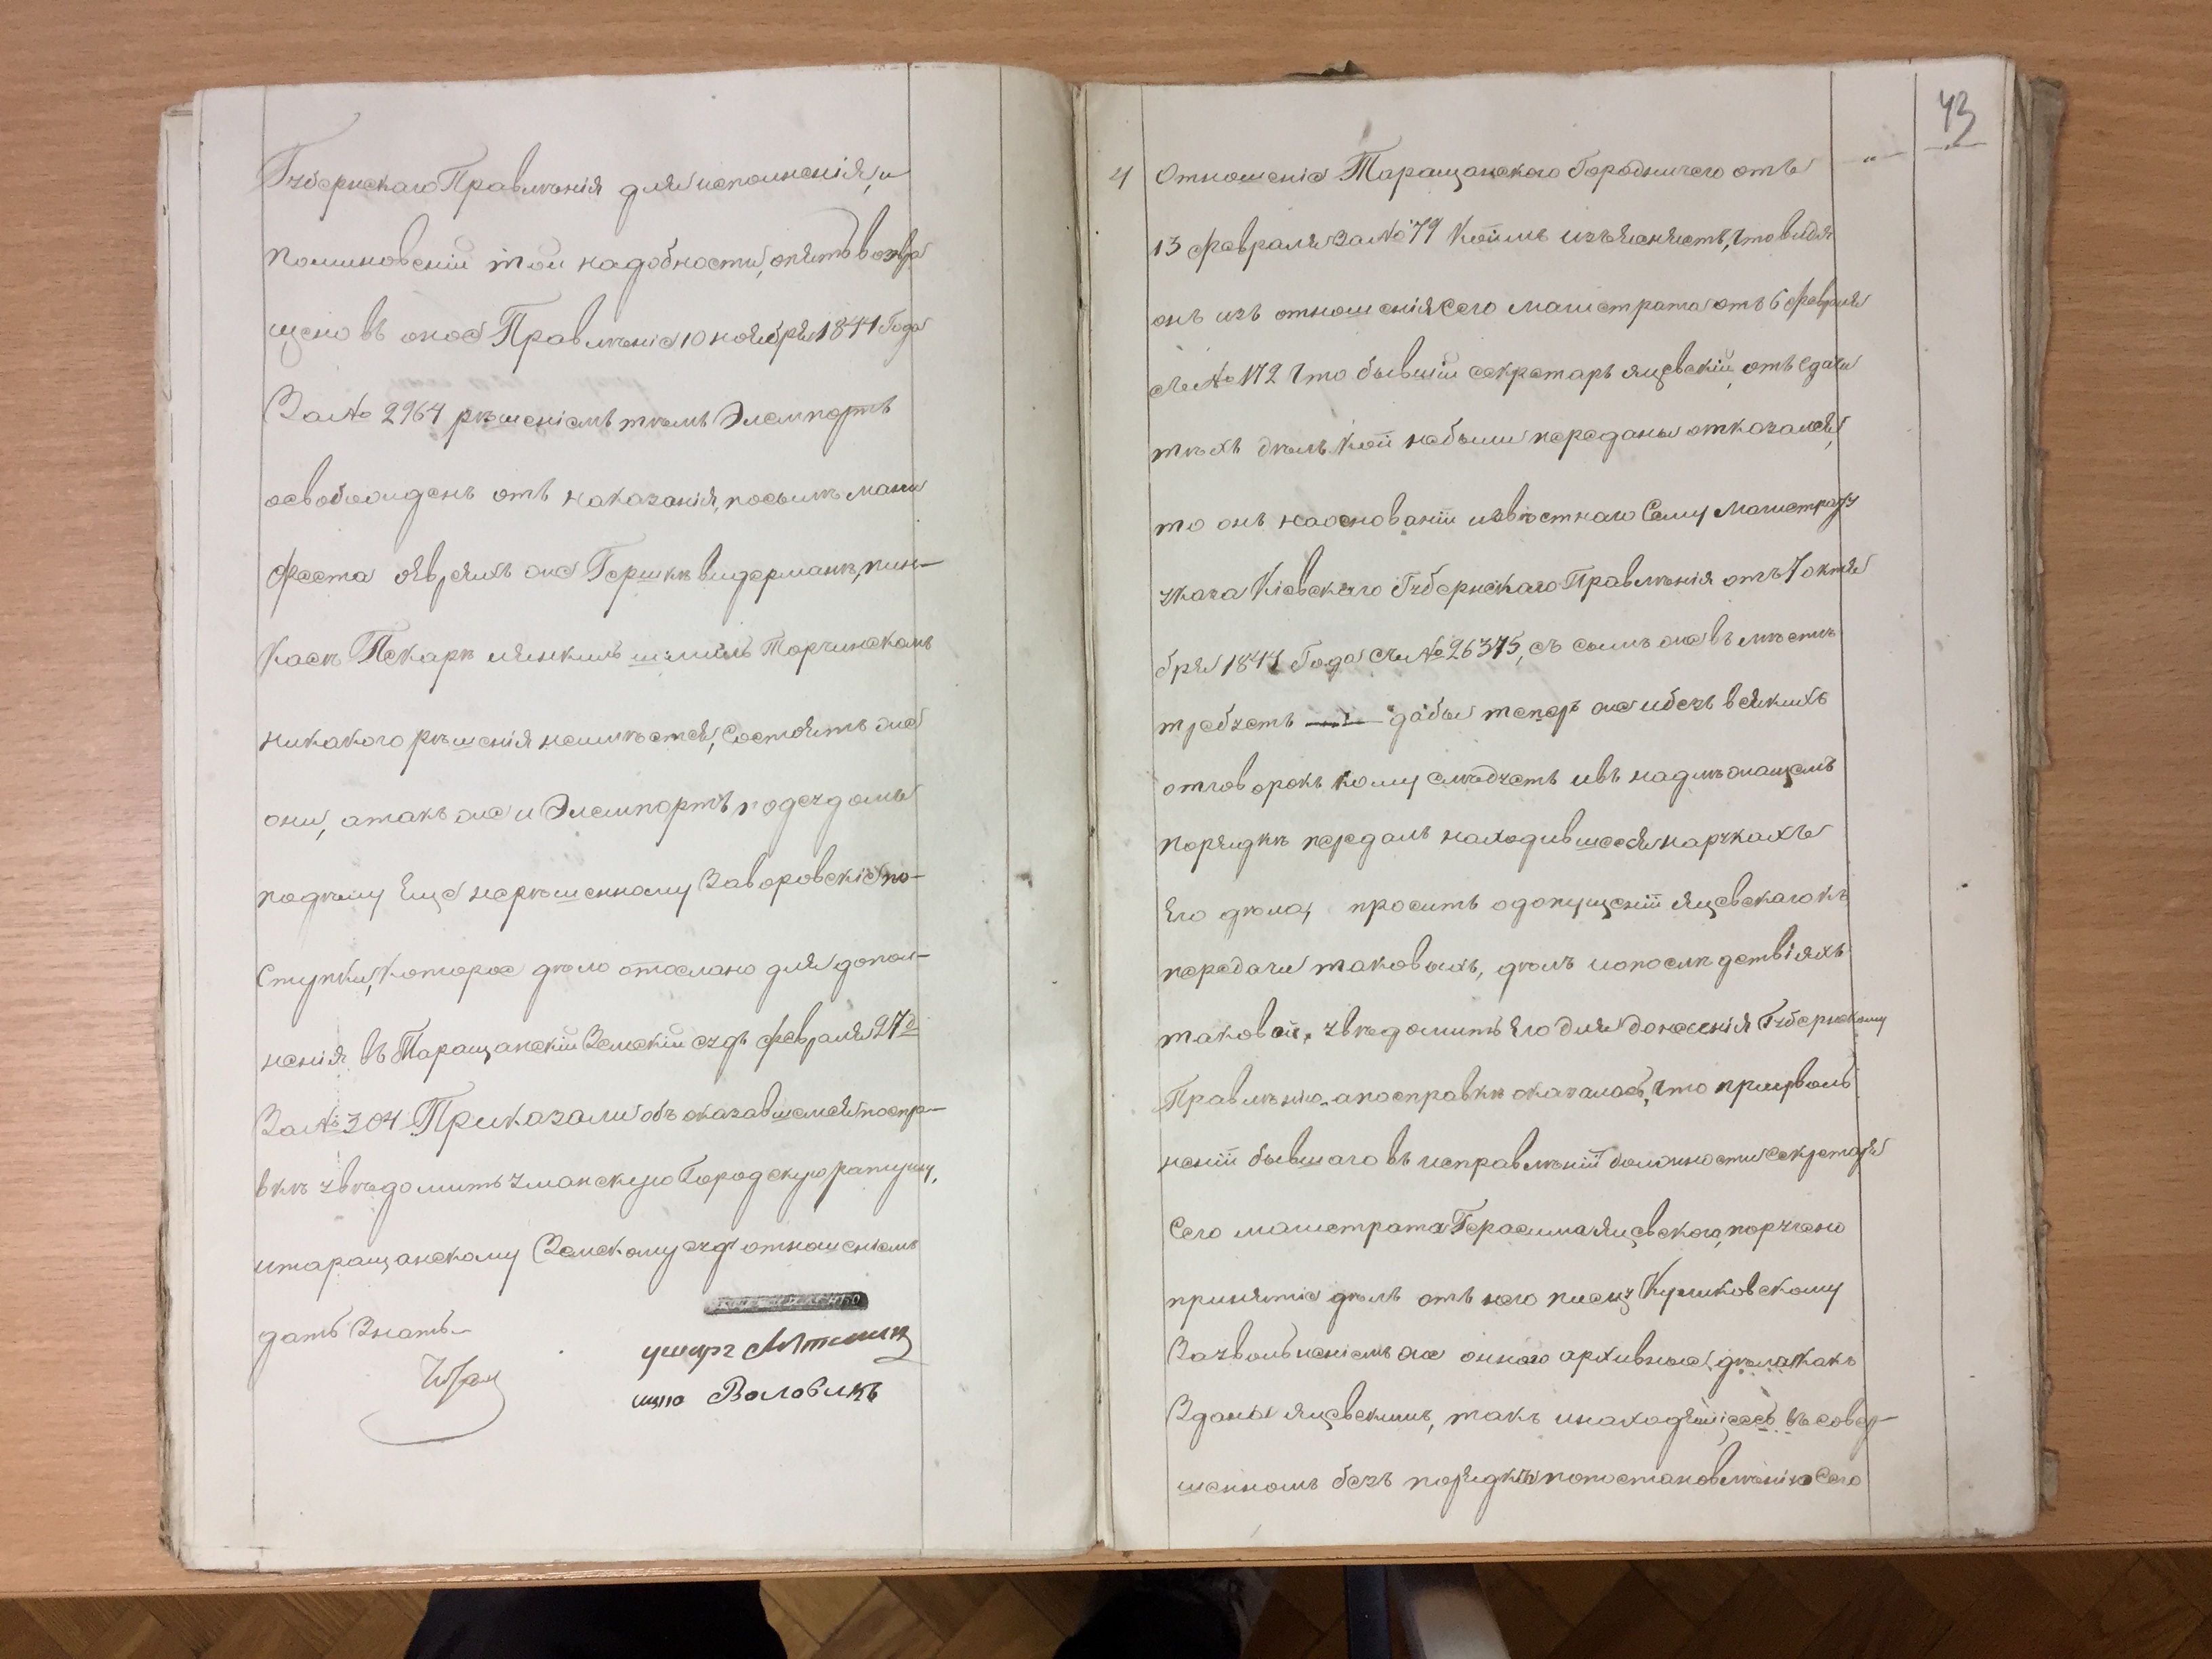 Губернскаго Правленія для исполненія, и
поминовеніи той надобности, опять возвра
щено въ оное Правленіе 10 ноября 1841 Года
За № 2964 рѣшеніемъ тѣмъ Элемпортъ
освобожденъ отъ наказанія, по силѣ мани
феста о яврѣяхъ же Гершкѣ видерманѣ, пин-
касѣ Пекарѣ и янкилѣ шмилѣ Торчинскомъ
никакого рѣшенія неимѣется, Состоятъ же
они, а такъ же и Элемпортъ подсудомъ
подѣлу Еще нерѣшенному Заворовскіе по-
ступки, которое дѣло отослано для допол-
ненія въ Таращанскій Земскій судъ февраля 27д
За № 304 Приказали объ оказавшемся поспра-
вкѣ увѣдомить Уманскую Городскую ратушу,
и таращанскому Земскому суду отношеніемъ
дать Знать.
Воловикъ
43
4 Отношеніе Таращанского Городничего отъ
13 февраля За № 79 коимъ изъясняетъ, что видя
онъ изъ отношенія сего магистрата отъ 6 февраля
№ 172 что бывшій секретаръ яцевскій, отъ сдачи
тѣхъ дѣлъ кои небыли переданы отказался,
то онъ наоснованіи извѣстнаго Сему Магистрату
указа Кіевскаго Губернскаго Правленія отъ 7 октя
бря 1841 Года за № 26375, съ симъ же въ мѣстѣ
требуетъ дабы теперъ же ибезъ всякихъ
отговорокъ кому слѣдуетъ ивъ надлѣжащемъ
порядкѣ передалъ находившееся нарукахъ
Его дѣла, проситъ одопущеніи яцевскагокъ
передачи таковыхъ, дѣлъ ипослѣдствіяхъ
таковой, увѣдомить Его для донесенія Губернскому
Правленію, апосправкѣ оказалось, что приуволь
неніи бывшаго въ исправленіи должности секретаря
Сего магистрата Герасима яцевского, поручено
принятіе дѣлъ отъ него писцу Куликовскому
Заувольненіемъ же онаго архивные дѣла какъ
Зданы яцевскимъ, такъ инаходящіеся въ совер-
шенномъ безъ порядкѣ попостановленію Сего